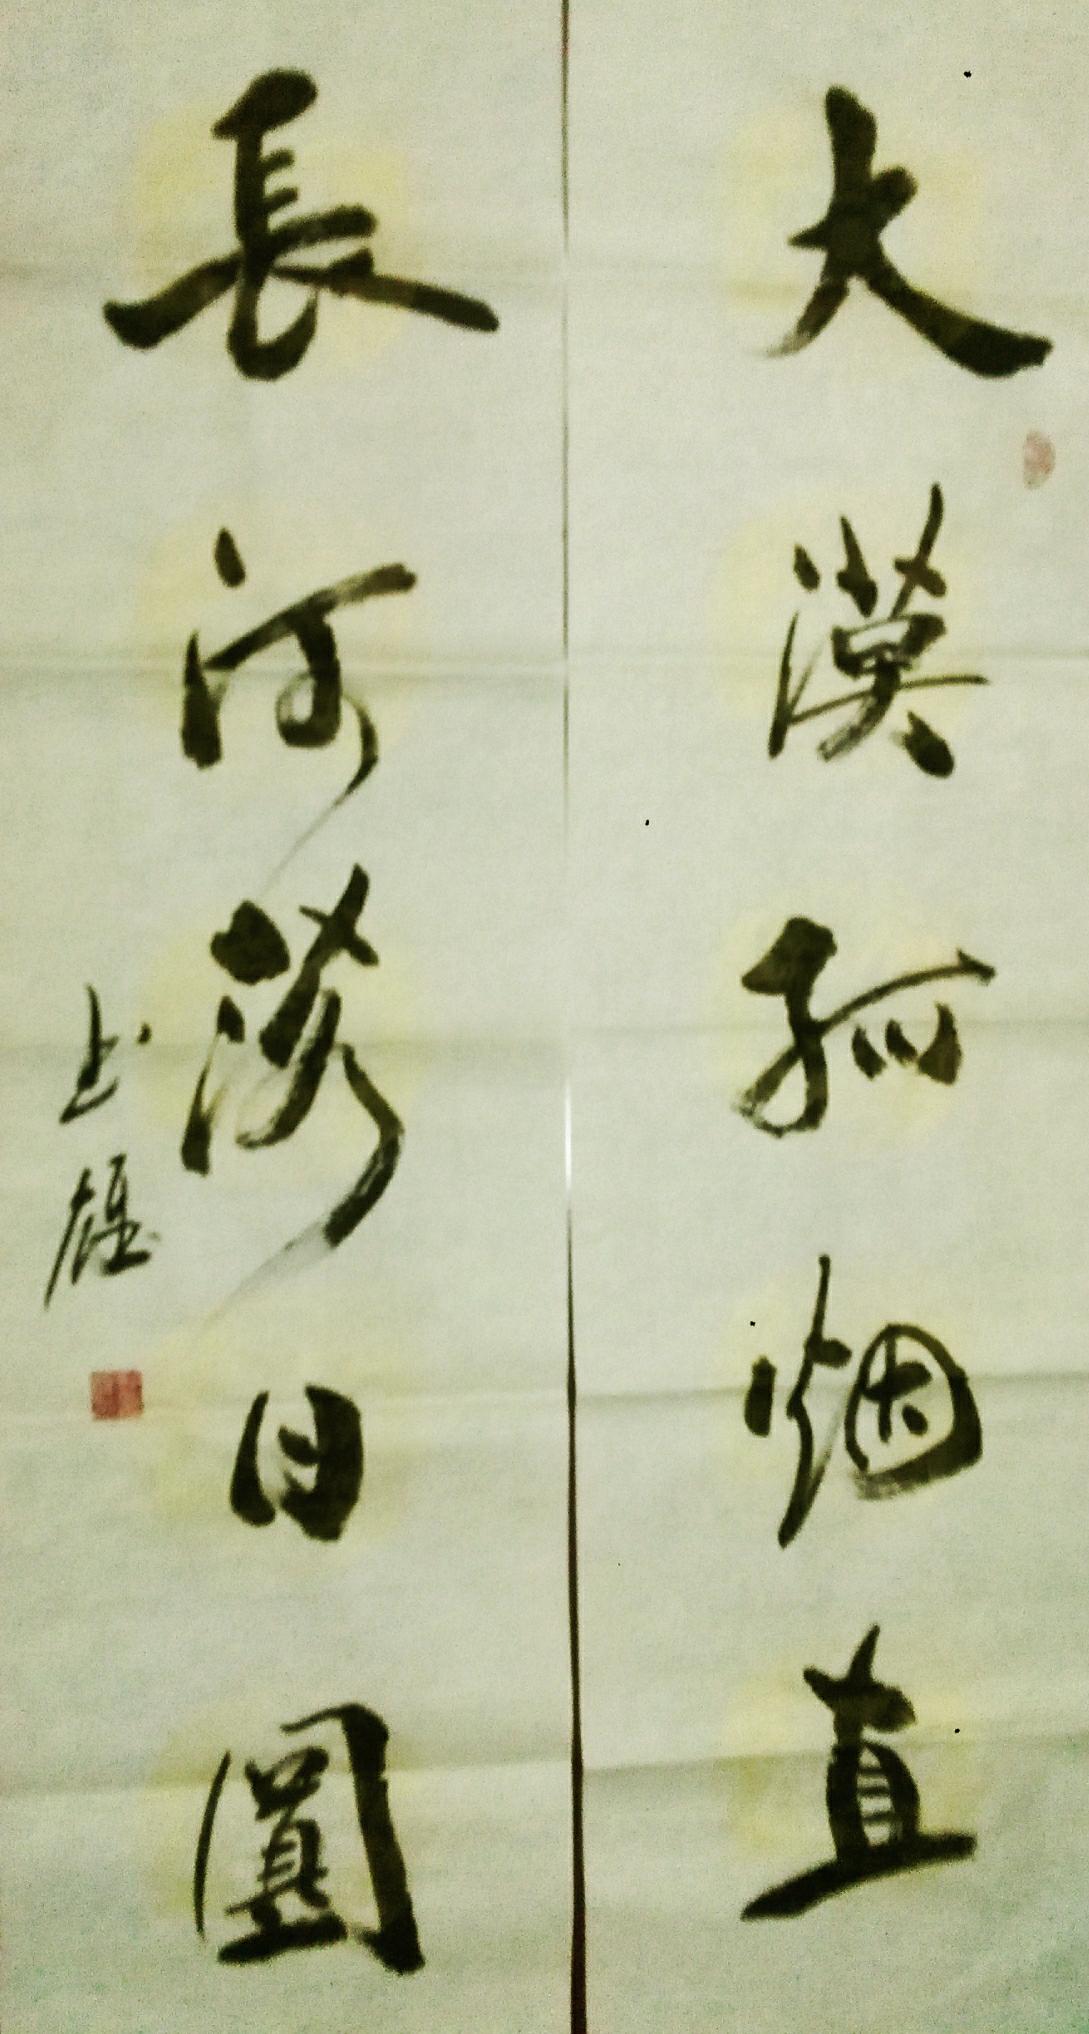 大漠孤烟直
長河落日圓
雄